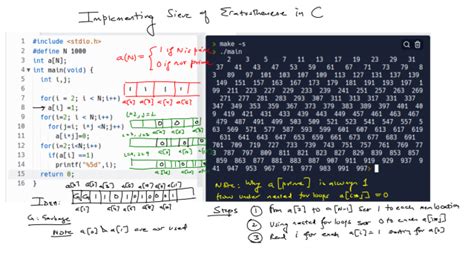 Implementing Sieve of Eratosthenese in C
1 #include <stdio.h>
2 #define N 1000
3 int a[N];
4 int main(void) {
5 int i,j;
6
7 for(i = 2; i < N;i++)
8 a[i] =1;
9 for(i=2; i < N;i++)
10 for(j=i; i*j <N;j++)
11 a[i*j]=0;
12 for(i=2;i<N;i++)
13 if(a[i] ==1)
14 printf("%5d",i);
15 return 0;
a[N] = { 1 if N is prime
0 if not prime
make -s
./main
2 3 5 7 11 13 17 19 23 29 31 3
7 41 43 47 53 59 61 67 71 73 79 8
3 89 97 101 103 107 109 113 127 131 137 139
149 151 157 163 167 173 179 181 191 193 197
199 211 223 227 229 233 239 241 251 257 263 269
271 277 281 283 293 307 311 313 317 331 337
347 349 353 359 367 373 379 383 389 397 401 40
9 419 421 431 433 439 443 449 457 461 463 467
479 487 491 499 503 509 521 523 541 547 557
563 569 571 577 587 593 599 601 607 613 617 619
631 641 643 647 653 659 661 673 677 683 691
701 709 719 727 733 739 743 751 757 761 769 77
3 787 797 809 811 821 823 827 829 839 853 857
859 863 877 881 883 887 907 911 919 929 937
941 947 953 967 971 977 983 991 997
Note: Why a[prime] is always 1
from under nested for loops a[i*j] = 0
Idea:
G: Garbage
Note a[0] & a[1] are not used
Steps
1 From a[2] to a[N-1] set 1 to each mem location
2 Using nested for loops set 0 to each a[i*j]
3 Read i for each a[i]=1 entry for a[i]